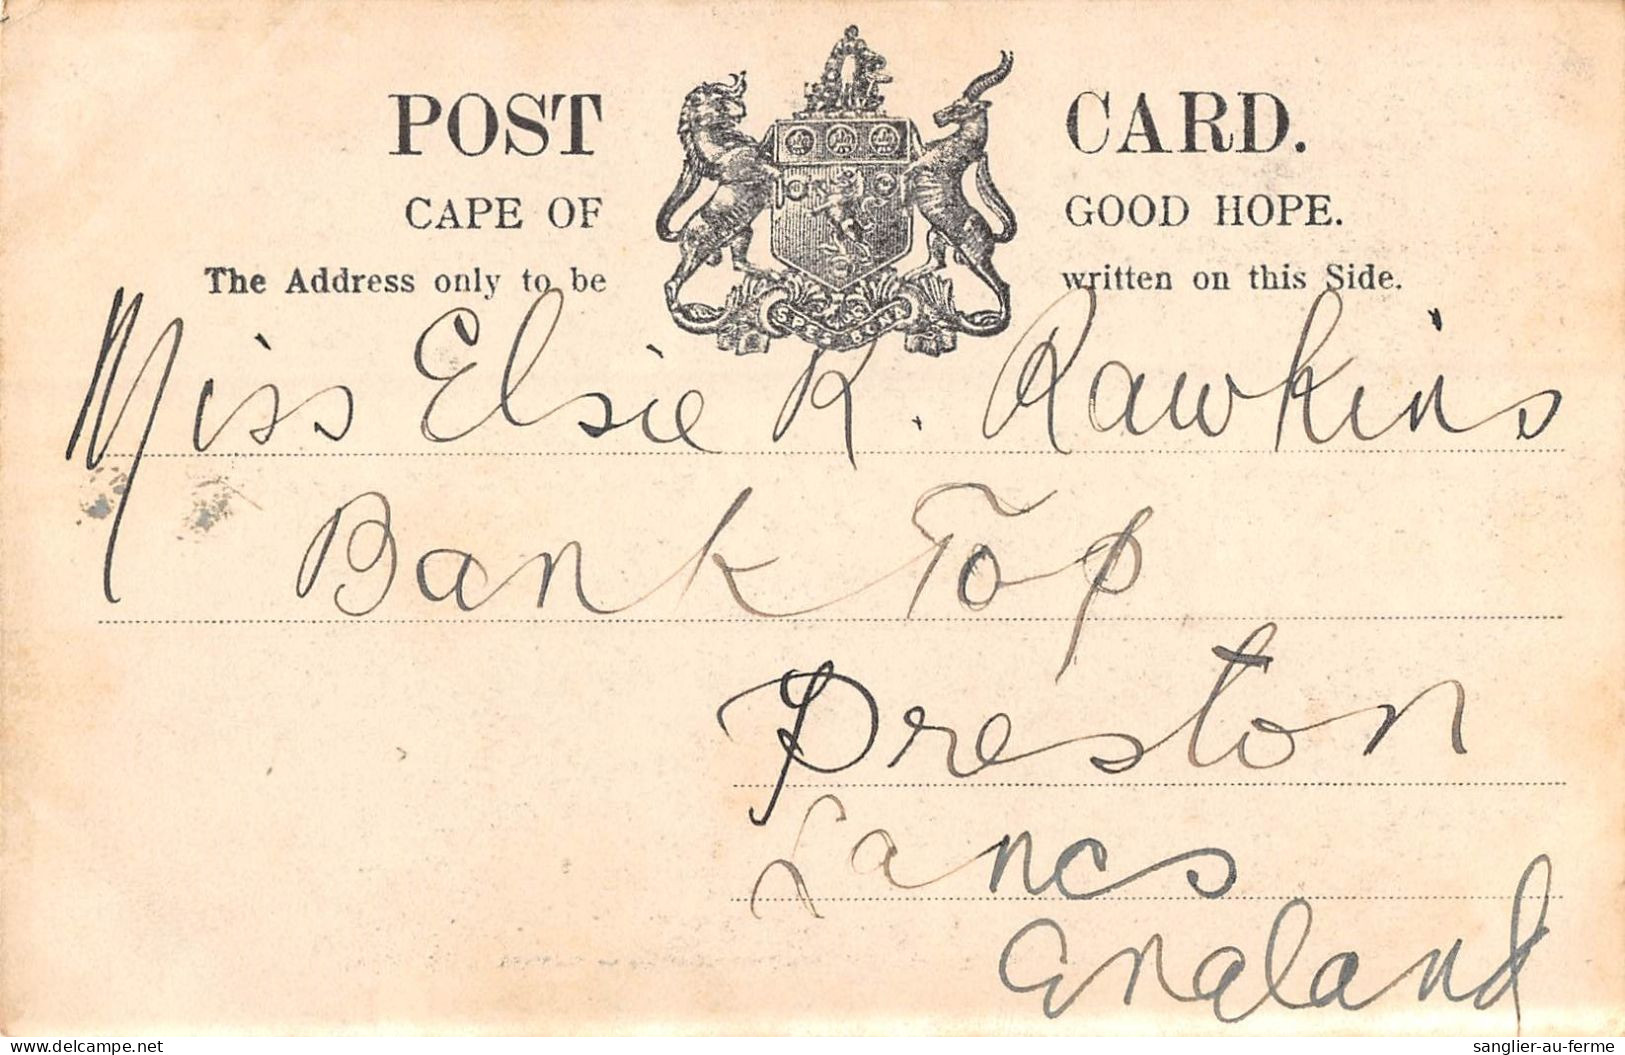 POST CARD.
CAPE OF GOOD HOPE.
The Address only to be written on this Side.
SPES BONA
Miss Elsie K. Rawkins
Bank Top
Preston
Lancs
England
delcampe.net
sanglier-au-ferme